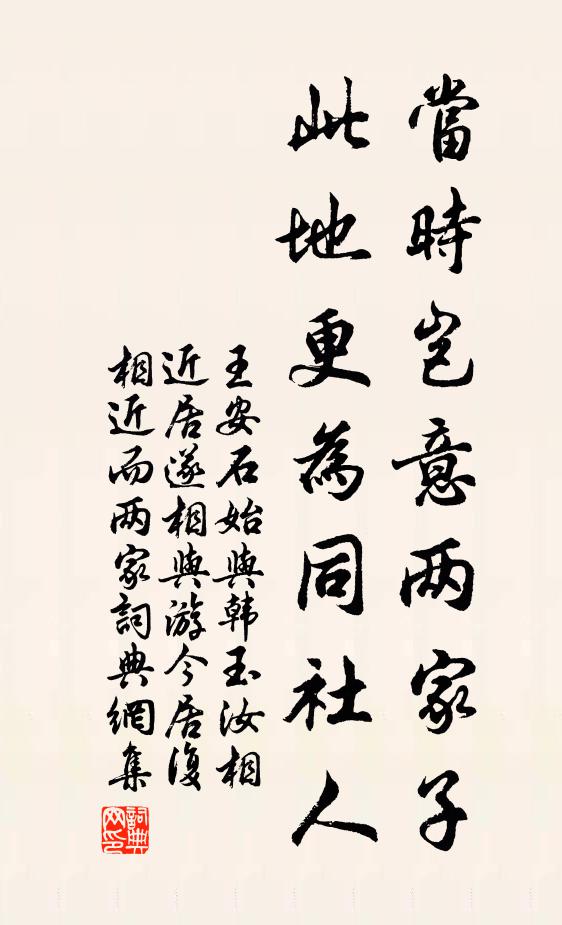 當時岂意两家子
此地更為同社人
王安石始與韩玉汝相
近居遂相與游今居復
相近而两家詞典網集
詞典网印